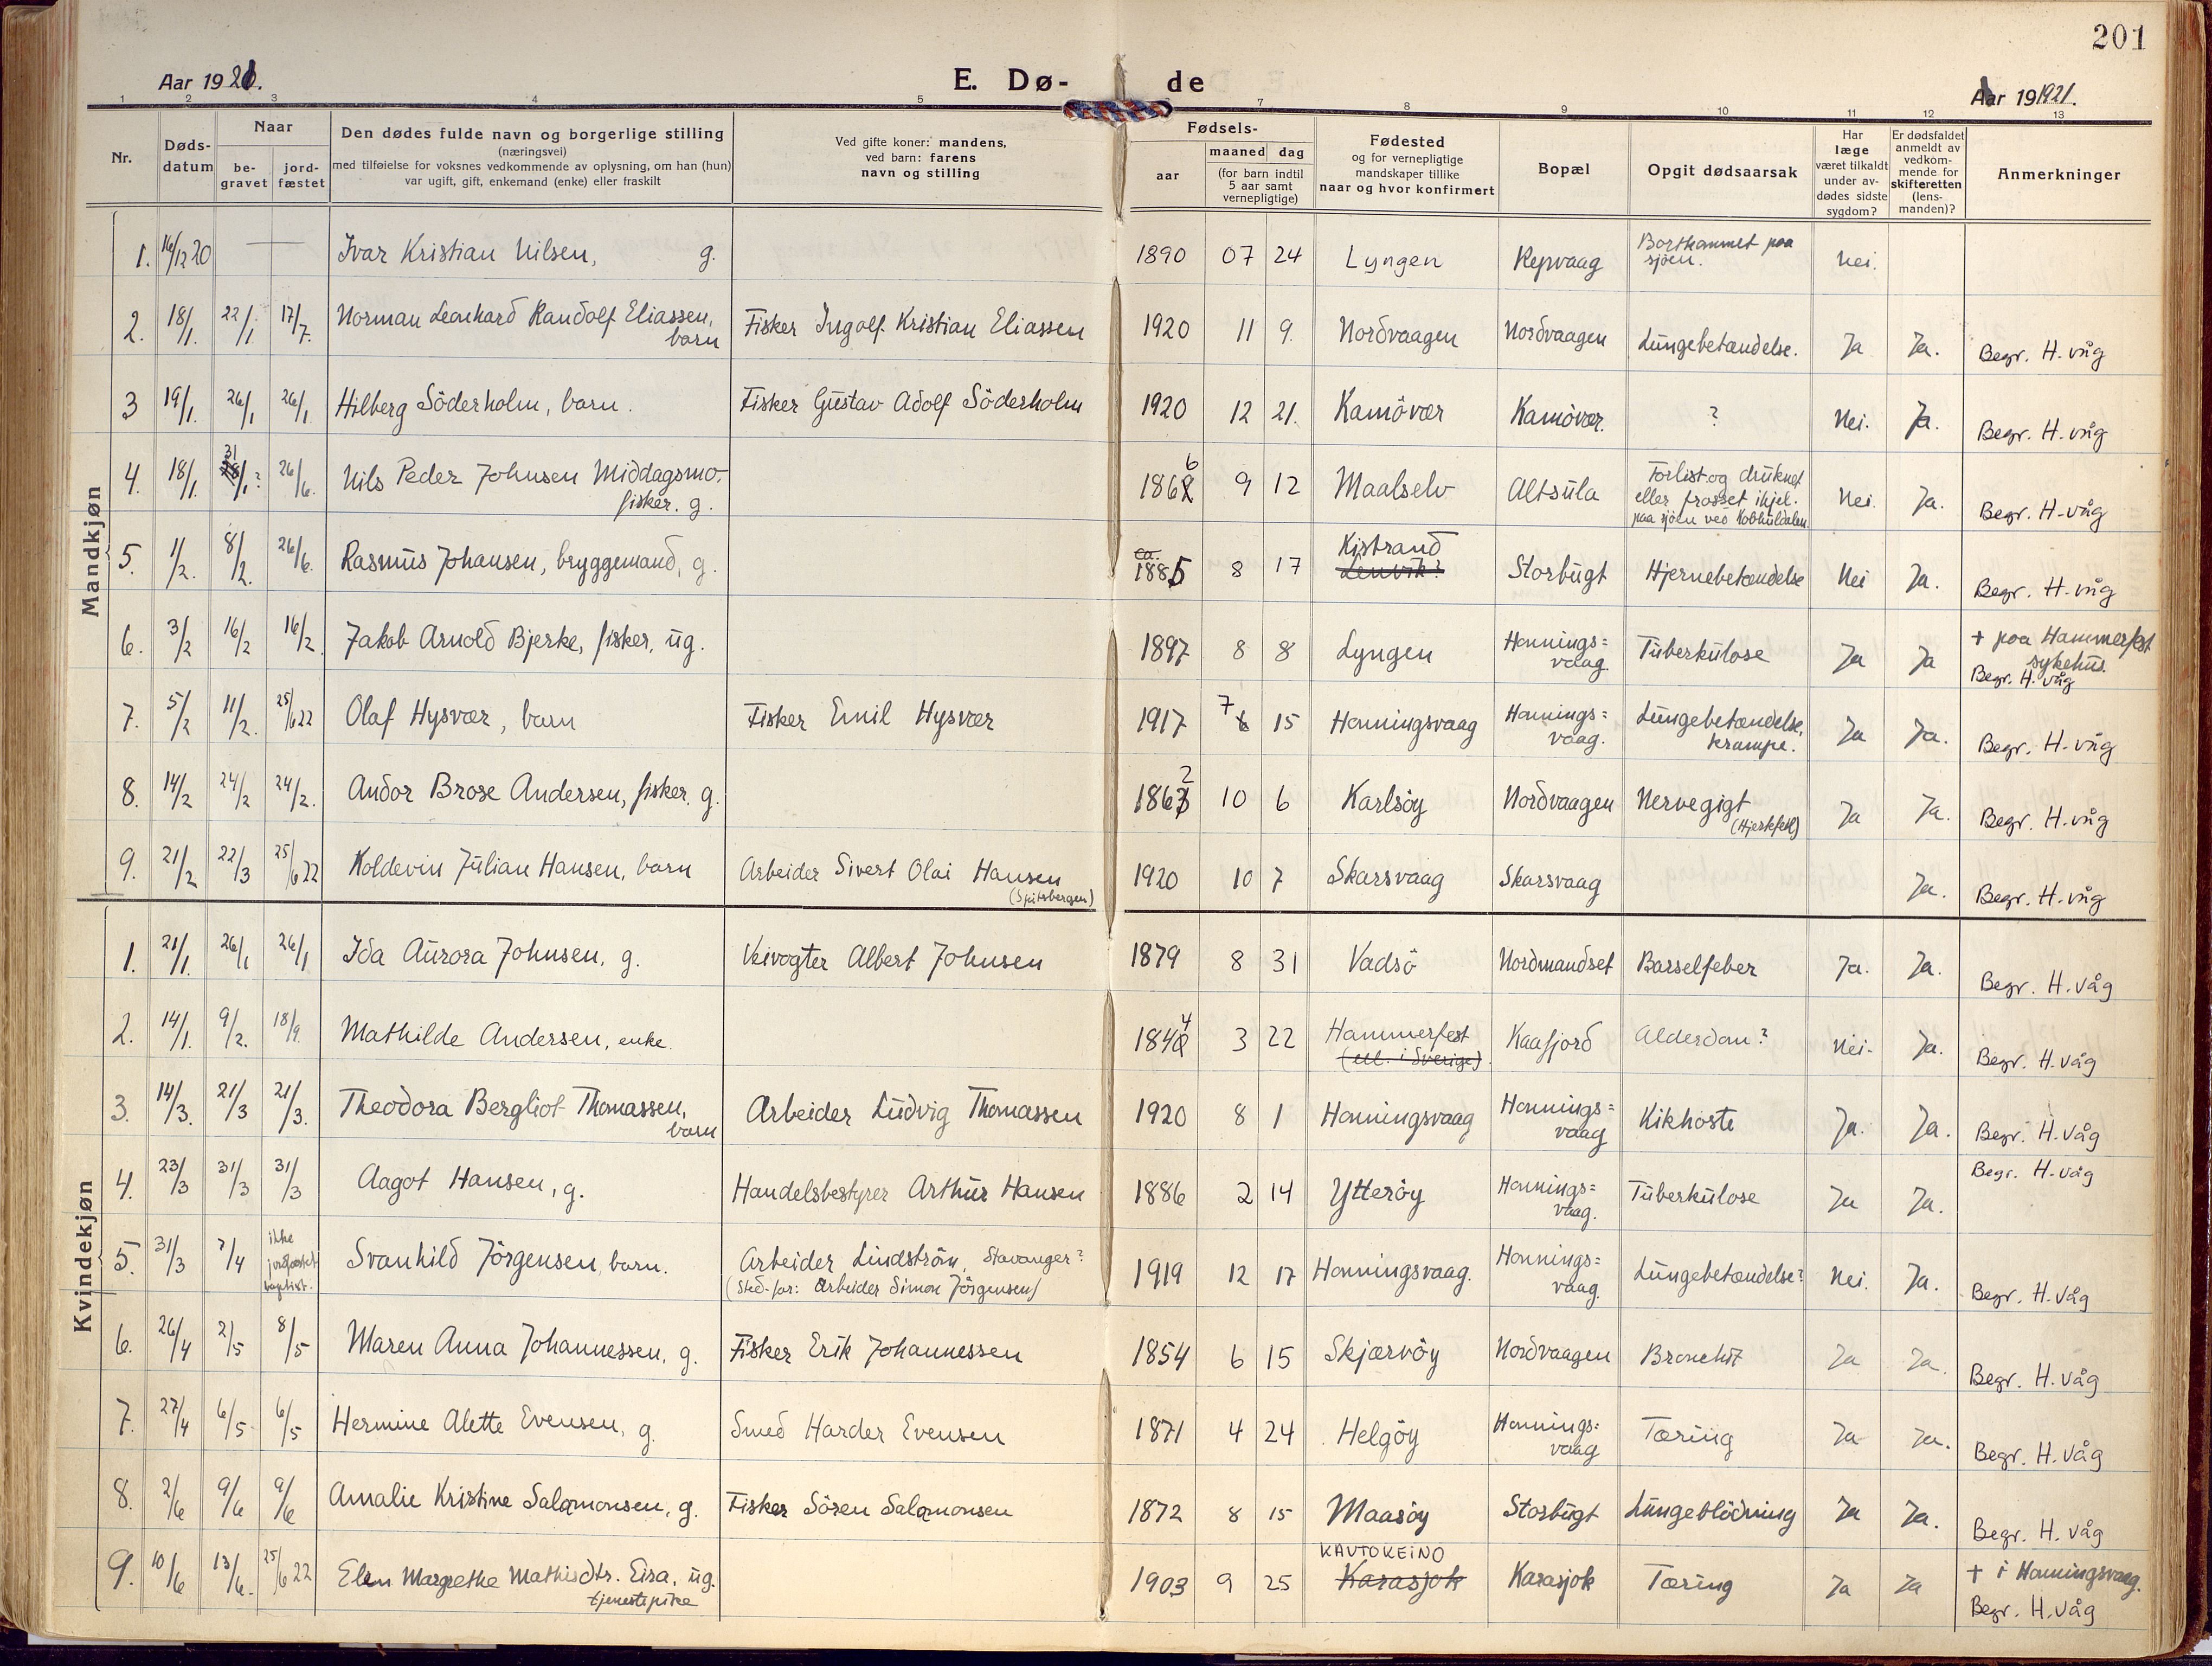 201
Aar 1921.
E. Dø-de
Aar 191921.
1 2 3 4 5 7 8 9 10 11 12 13
Nr.
Døds-datum
Naar
be-gravet
jord-fæstet
Den dødes fulde navn og borgerlige stilling
(næringsvei)
med tilføielse for voksnes vedkommende av oplysning, om han (hun)
var ugift, gift, enkemand (enke) eller fraskilt
Ved gifte koner: mandens,
ved barn: farens
navn og stilling
Fødsels-
aar
maaned dag
(for barn indtil
5 aar samt
vernepligtige)
Fødested
og for vernepligtige
mandskaper tillike
naar og hvor konfirmert
Bopæl
Opgit dødsaarsak
Har
læge
været tilkaldt
under av-
dødes sidste
sygdom?
Er dødsfaldet
anmeldt av
vedkom-
mende for
skifteretten
(lens-
manden)?
Anmerkninger
Mandkjøn
1. 16/12 20 — Ivar Kristian Nilsen, g. 1890 07 24 Lyngen Repvaag Bortkommet paa
sjöen. Nei.
2. 18/1. 22/1. 17/7. Norman Leonhard Randolf Eliassen,
barn Fisker Ingolf Kristian Eliassen 1920 11 9. Nordvaagen Nordvaagen Lungebetændelse. Ja Ja. Begr. H.våg
3 19/1. 26/1 26/1 Hilberg Söderholm, barn. Fisker Gustav Adolf Söderholm 1920 12 21. Kamövær Kamövær. ? Nei. Ja. Begr. H.våg
4. 18/1. 31/1? 26/6. Nils Peder Johnsen Middagsmo.
fisker. g. 1866 9 12 Maalselv Altsula Forlist og druknet
eller frosset ihjel.
paa sjöen ved Kobhuldalen. Nei. Ja. Begr. H-våg
5. 1/2. 8/2. 26/6. Rasmus Johansen, bryggemand, g. ca.
1885 8 17 Kistrand
Lenvik? Storbugt Hjernebetændelse Nei Ja. Begr. H-våg
6. 3/2 16/2 16/2. Jakob Arnold Bjerke, fisker, ug. 1897 8 8 Lyngen Honnings=
vaag Tuberkulose Ja Ja + paa Hammerfest
sykehus.
Begr. H. våg
7. 5/2 11/2. 25/6 22 Olaf Hysvær, barn Fisker Emil Hysvær 1917 7 15 Honningsvaag Honnings=
vaag. Lungebetændelse,
krampe. Ja Ja. Begr. H-våg
8. 14/2 24/2 24/2. Andor Brose Andersen, fisker, g. 1862 10 6 Karlsöy Nordvaagen Nervegigt
(Hjertefeil) Ja Ja. Begr. H.våg
9. 21/2 22/3 25/6 22 Koldevin Julian Hansen, barn Arbeider Sivert Olai Hansen
(Spitsbergen) 1920 10 7 Skarsvaag Skarsvaag Ja. Begr. H.våg
Kvindekjøn
1. 21/1. 26/1 26/1 Ida Aurora Johnsen, g. Veivogter Albert Johnsen 1879 8 31 Vadsö Nordmandset Barselfeber Ja. Ja. Begr. H.våg
2. 14/1. 9/2. 18/9. Mathilde Andersen, enke. 1844 3 22 Hammerfest
(ell. i Sverige). Kaafjord Alderdom? Nei. Ja. Begr. H.våg
3. 14/3. 21/3 21/3. Theodora Bergliot Thomassen,
barn Arbeider Ludvig Thomassen 1920 8 1 Honningsvaag Honnings=
vaag Kikhoste Ja. Ja. Begr. H.våg
4. 23/3 31/3 31/3 Aagot Hansen, g. Handelsbestyrer Arthur Hansen 1886 2 14 Ytteröy Honnings=
vaag. Tuberkulose Ja Ja. Begr. H-våg
5. 31/3 7/4 ikke
jordfæstet
baptist. Svanhild Jörgensen, barn. Arbeider Lindström, Stavanger?
(Sted-far: Arbeider Simon Jörgensen) 1919 12 17 Honningsvaag. Honnings=
vaag. Lungebetændelse? Nei. Ja. Begr. H.våg
6. 26/4 2/5 8/5 Maren Anna Johannessen, g. Fisker Erik Johannessen 1854 6 15 Skjærvöy Nordvaagen Bronchit Ja Ja. Begr. H.våg
7. 27/4 6/5 6/5 Hermine Alette Evensen, g. Smed Harder Evensen 1871 4 24 Helgöy Honnings=
vaag Tæring Ja Ja. Begr. H.våg
8. 2/6 9/6 9/6 Amalie Kristine Salamonsen, g. Fisker Sören Salamonsen 1872 8 15 Maasöy Storbugt Lungeblödning Ja Ja. Begr. H. våg
9. 10/6 13/6. 25/6 22 Elen Margrethe Mathisdtr. Eira, ug.
tjenestepike 1903 9 25 KAUTOKEINO
Karasjok Karasjok Tæring Ja Ja + i Honningsvaag.
Begr. H.våg